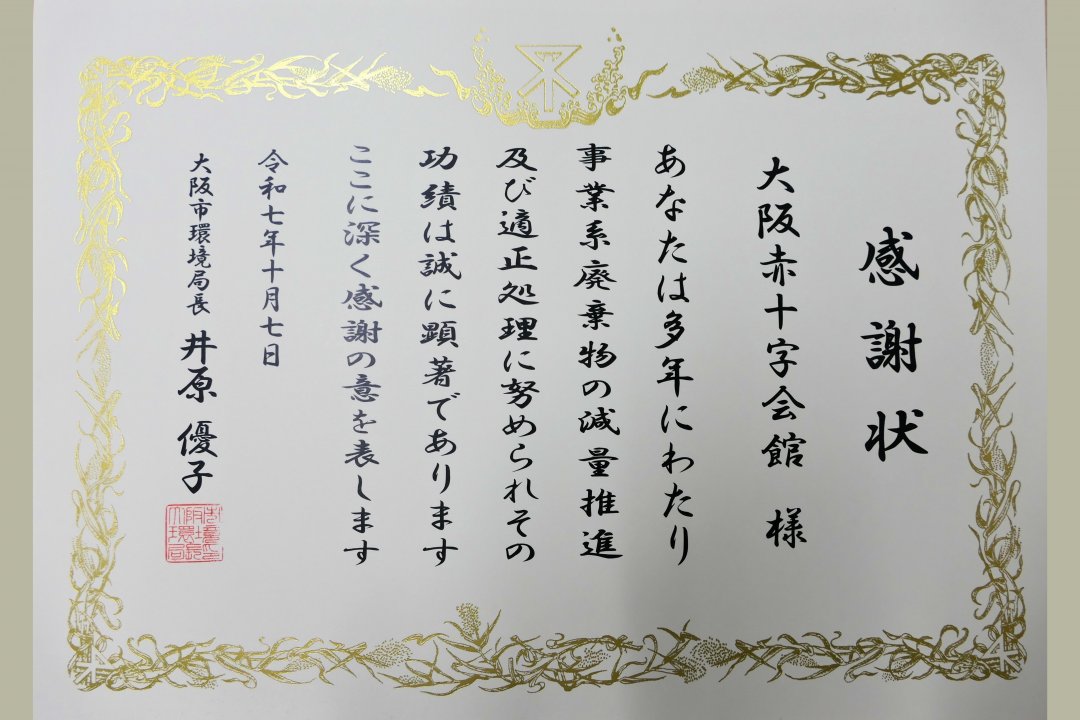 感謝状
大阪赤十字会館 様
あなたは多年にわたり
事業系廃棄物の減量推進
及び適正処理に努められその
功績は誠に顕著であります
ここに深く感謝の意を表します
令和七年十月七日
大阪市環境局長 井原 優子